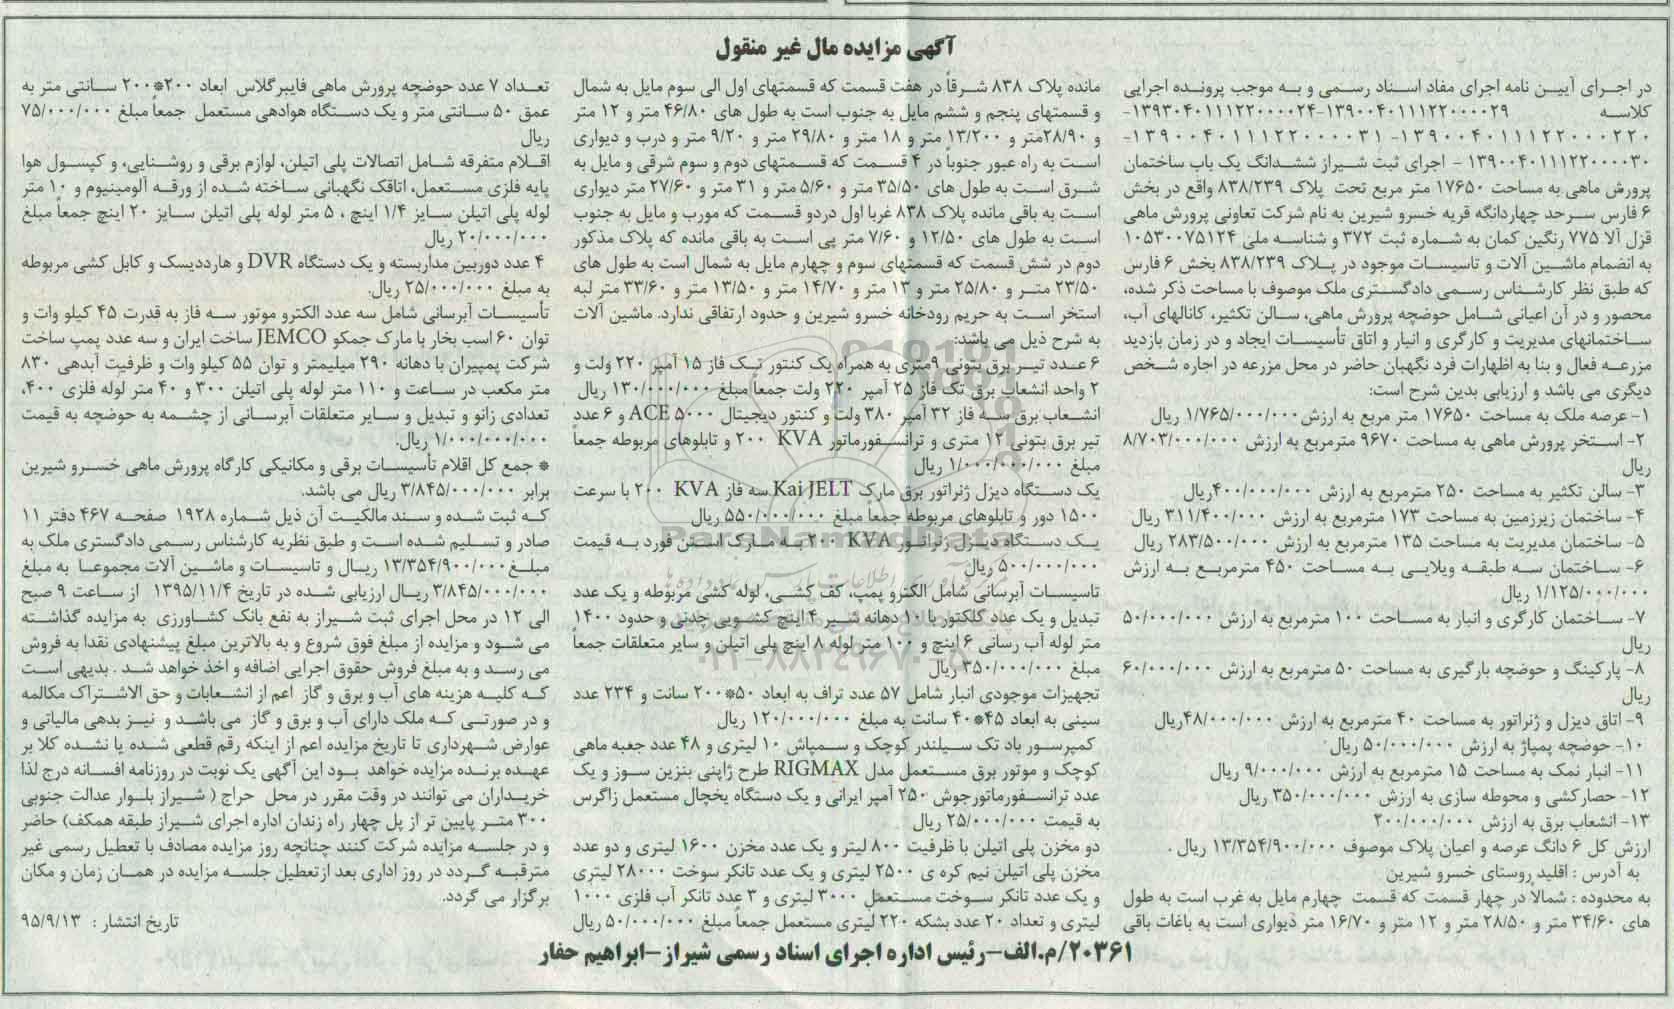 آگهی مزایده مال غیر منقول
در اجرای آیین نامه اجرای مفاد اسناد رسمی و به موجب پرونده اجرایی
کلاسه ۱۳۹۰۰۴۰۱۱۱۲۲۰۰۰۰۲۹-۱۳۹۳۰۴۰۱۱۱۲۲۰۰۰۰۲۴-
۱۳۹۰۰۴۰۱۱۱۲۲۰۰۰۲۲۰-۱۳۹۰۰۴۰۱۱۱۲۲۰۰۰۰۳۱-
۱۳۹۰۰۴۰۱۱۱۲۲۰۰۰۰۳۰ - اجرای ثبت شیراز ششدانگ یک باب ساختمان
پرورش ماهی به مساحت ۱۷۶۵۰ متر مربع تحت پلاک ۸۳۸/۲۳۹ واقع در بخش
۶ فارس سرحد چهاردانگه قریه خسرو شیرین به نام شرکت تعاونی پرورش ماهی
قزل آلا ۷۷۵ رنگین کمان به شماره ثبت ۳۷۲ و شناسه ملی ۱۰۵۳۰۰۷۵۱۲۴
به انضمام ماشین آلات و تاسیسات موجود در پلاک ۸۳۸/۲۳۹ بخش ۶ فارس
که طبق نظر کارشناس رسمی دادگستری ملک موصوف با مساحت ذکر شده،
محصور و در آن اعیانی شامل حوضچه پرورش ماهی، سالن تکثیر، کانالهای آب،
ساختمانهای مدیریت و کارگری و انبار و اتاق تأسیسات ایجاد و در زمان بازدید
مزرعه فعال و بنا به اظهارات فرد نگهبان حاضر در محل مزرعه در اجاره شخص
دیگری می باشد و ارزیابی بدین شرح است:
۱- عرصه ملک به مساحت ۱۷۶۵۰ متر مربع به ارزش ۱/۷۶۵/۰۰۰/۰۰۰ ریال
۲- استخر پرورش ماهی به مساحت ۹۶۷۰ مترمربع به ارزش ۸/۷۰۳/۰۰۰/۰۰۰
ریال
۳- سالن تکثیر به مساحت ۲۵۰ مترمربع به ارزش ۴۰۰/۰۰۰/۰۰۰ریال
۴- ساختمان زیرزمین به مساحت ۱۷۳ مترمربع به ارزش ۳۱۱/۴۰۰/۰۰۰ ریال
۵- ساختمان مدیریت به مساحت ۱۳۵ مترمربع به ارزش ۲۸۳/۵۰۰/۰۰۰ ریال
۶- ساختمان سه طبقه ویلایی به مساحت ۴۵۰ مترمربع به ارزش
۱/۱۲۵/۰۰۰/۰۰۰ ریال
۷- ساختمان کارگری و انبار به مساحت ۱۰۰ مترمربع به ارزش ۵۰/۰۰۰/۰۰۰
ریال
۸- پارکینگ و حوضچه بارگیری به مساحت ۵۰ مترمربع به ارزش ۶۰/۰۰۰/۰۰۰
ریال
۹- اتاق دیزل و ژنراتور به مساحت ۴۰ مترمربع به ارزش ۴۸/۰۰۰/۰۰۰ریال
۱۰- حوضچه پمپاژ به ارزش ۵۰/۰۰۰/۰۰۰ ریال
۱۱- انبار نمک به مساحت ۱۵ مترمربع به ارزش ۹/۰۰۰/۰۰۰ ریال
۱۲- حصارکشی و محوطه سازی به ارزش ۳۵۰/۰۰۰/۰۰۰ ریال
۱۳- انشعاب برق به ارزش ۲۰۰/۰۰۰/۰۰۰
ارزش کل ۶ دانگ عرصه و اعیان پلاک موصوف ۱۳/۳۵۴/۹۰۰/۰۰۰ ریال .
به آدرس : اقلید روستای خسرو شیرین
به محدوده : شمالاً در چهار قسمت که قسمت چهارم مایل به غرب است به طول
های ۳۴/۶۰ متر و ۲۸/۵۰ متر و ۱۲ متر و ۱۶/۷۰ متر دیواری است به باغات باقی
مانده پلاک ۸۳۸ شرقاً در هفت قسمت که قسمتهای اول الی سوم مایل به شمال
و قسمتهای پنجم و ششم مایل به جنوب است به طول های ۴۶/۸۰ متر و ۱۲ متر
و ۲۸/۹۰متر و ۱۳/۲۰۰ متر و ۱۸ متر و ۲۹/۸۰ متر و ۹/۲۰ متر و درب و دیواری
است به راه عبور جنوباً در ۴ قسمت که قسمتهای دوم و سوم شرقی و مایل به
شرق است به طول های ۳۵/۵۰ متر و ۵/۶۰ متر و ۳۱ متر و ۲۷/۶۰ متر دیواری
است به باقی مانده پلاک ۸۳۸ غربا اول دردو قسمت که مورب و مایل به جنوب
است به طول های ۱۲/۵۰ و ۷/۶۰ متر پی است به باقی مانده که پلاک مذکور
دوم در شش قسمت که قسمتهای سوم و چهارم مایل به شمال است به طول های
۲۳/۵۰ متر و ۲۵/۸۰ متر و ۱۳ متر و ۱۴/۷۰ متر و ۱۳/۵۰ متر و ۳۳/۶۰ متر لبه
استخر است به حریم رودخانه خسرو شیرین و حدود ارتفاقی ندارد. ماشین آلات
به شرح ذیل می باشد:
۶ عدد تیر برق بتونی ۹متری به همراه یک کنتور تک فاز ۱۵ آمپر ۲۲۰ ولت و
۲ واحد انشعاب برق تک فاز ۲۵ آمپر ۲۲۰ ولت جمعاً مبلغ ۱۳۰/۰۰۰/۰۰۰ ریال
انشعاب برق سه فاز ۳۲ آمپر ۳۸۰ ولت و کنتور دیجیتال ACE ۵۰۰۰ و ۶ عدد
تیر برق بتونی ۱۲ متری و ترانسفورماتور ۲۰۰ KVA و تابلوهای مربوطه جمعاً
مبلغ ۱/۰۰۰/۰۰۰/۰۰۰ ریال
یک دستگاه دیزل ژنراتور برق مارک Kai JELT سه فاز ۲۰۰ KVA با سرعت
۱۵۰۰ دور و تابلوهای مربوطه جمعاً مبلغ ۵۵۰/۰۰۰/۰۰۰ ریال
یک دستگاه دیزل ژنراتور ۲۰۰ KVA به مارک استن فورد به قیمت
۵۰۰/۰۰۰/۰۰۰ ریال
تاسیسات آبرسانی شامل الکترو پمپ، کف کشی، لوله کشی مربوطه و یک عدد
تبدیل و یک عدد کلکتور با ۱۰ دهانه شیر ۴ اینچ کشویی چدنی و حدود ۱۴۰۰
متر لوله آب رسانی ۶ اینچ و ۱۰۰ متر لوله ۸ اینچ پلی اتیلن و سایر متعلقات جمعاً
مبلغ ۳۵۰/۰۰۰/۰۰۰ ریال
تجهیزات موجودی انبار شامل ۵۷ عدد تراف به ابعاد ۵۰*۲۰۰ سانت و ۲۳۴ عدد
سینی به ابعاد ۴۵*۴۰ سانت به مبلغ ۱۲۰/۰۰۰/۰۰۰ ریال
کمپرسور باد تک سیلندر کوچک و سمپاش ۱۰ لیتری و ۴۸ عدد جعبه ماهی
کوچک و موتور برق مستعمل مدل RIGMAX طرح ژاپنی بنزین سوز و یک
عدد ترانسفورماتورجوش ۲۵۰ آمپر ایرانی و یک دستگاه یخچال مستعمل زاگرس
به قیمت ۲۵/۰۰۰/۰۰۰ ریال
دو مخزن پلی اتیلن با ظرفیت ۸۰۰ لیتر و یک عدد مخزن ۱۶۰۰ لیتری و دو عدد
مخزن پلی اتیلن نیم کره ی ۲۵۰۰ لیتری و یک عدد تانکر سوخت ۲۸۰۰۰ لیتری
و یک عدد تانکر سوخت مستعمل ۳۰۰۰ لیتری و ۳ عدد تانکر آب فلزی ۱۰۰۰
لیتری و تعداد ۲۰ عدد بشکه ۲۲۰ لیتری مستعمل جمعاً مبلغ ۵۰/۰۰۰/۰۰۰ ریال
تعداد ۷ عدد حوضچه پرورش ماهی فایبرگلاس ابعاد ۲۰۰*۲۰۰ سانتی متر به
عمق ۵۰ سانتی متر و یک دستگاه هوادهی مستعمل جمعاً مبلغ ۷۵/۰۰۰/۰۰۰
ریال
اقلام متفرقه شامل اتصالات پلی اتیلن، لوازم برقی و روشنایی، و کپسول هوا
پایه فلزی مستعمل، اتاقک نگهبانی ساخته شده از ورقه آلومینیوم و ۱۰ متر
لوله پلی اتیلن سایز ۱/۴ اینچ ، ۵ متر لوله پلی اتیلن سایز ۲۰ اینچ جمعاً مبلغ
۲۰/۰۰۰/۰۰۰ ریال
۴ عدد دوربین مداربسته و یک دستگاه DVR و هارددیسک و کابل کشی مربوطه
به مبلغ ۲۵/۰۰۰/۰۰۰ ریال.
تأسیسات آبرسانی شامل سه عدد الکترو موتور سه فاز به قدرت ۴۵ کیلو وات و
توان ۶۰ اسب بخار با مارک جمکو JEMCO ساخت ایران و سه عدد پمپ ساخت
شرکت پمپیران با دهانه ۲۹۰ میلیمتر و توان ۵۵ کیلو وات و ظرفیت آبدهی ۸۳۰
متر مکعب در ساعت و ۱۱۰ متر لوله پلی اتیلن ۳۰۰ و ۴۰ متر لوله فلزی ۴۰۰،
تعدادی زانو و تبدیل و سایر متعلقات آبرسانی از چشمه به حوضچه به قیمت
۱/۰۰۰/۰۰۰/۰۰۰ ریال.
* جمع کل اقلام تأسیسات برقی و مکانیکی کارگاه پرورش ماهی خسرو شیرین
برابر ۳/۸۴۵/۰۰۰/۰۰۰ ریال می باشد.
که ثبت شده و سند مالکیت آن ذیل شماره ۱۹۲۸ صفحه ۴۶۷ دفتر ۱۱
صادر و تسلیم شده است و طبق نظریه کارشناس رسمی دادگستری ملک به
مبلغ۱۳/۳۵۴/۹۰۰/۰۰۰ ریال و تاسیسات و ماشین آلات مجموعا به مبلغ
۳/۸۴۵/۰۰۰/۰۰۰ ریال ارزیابی شده در تاریخ ۱۳۹۵/۱۱/۴ از ساعت ۹ صبح
الی ۱۲ در محل اجرای ثبت شیراز به نفع بانک کشاورزی به مزایده گذاشته
می شود و مزایده از مبلغ فوق شروع و به بالاترین مبلغ پیشنهادی نقدا به فروش
می رسد و به مبلغ فروش حقوق اجرایی اضافه و اخذ خواهد شد . بدیهی است
که کلیه هزینه های آب و برق و گاز اعم از انشعابات و حق الاشتراک مکالمه
و در صورتی که ملک دارای آب و برق و گاز می باشد و نیز بدهی مالیاتی و
عوارض شهرداری تا تاریخ مزایده اعم از اینکه رقم قطعی شده یا نشده کلا بر
عهده برنده مزایده خواهد بود این آگهی یک نوبت در روزنامه افسانه درج لذا
خریداران می توانند در وقت مقرر در محل حراج ( شیراز بلوار عدالت جنوبی
۳۰۰ متر پایین تر از پل چهار راه زندان اداره اجرای شیراز طبقه همکف) حاضر
و در جلسه مزایده شرکت کنند چنانچه روز مزایده مصادف با تعطیل رسمی غیر
مترقبه گردد در روز اداری بعد ازتعطیل جلسه مزایده در همان زمان و مکان
برگزار می گردد.
تاریخ انتشار : ۹۵/۹/۱۳
۲۰۳۶۱/م.الف-رئیس اداره اجرای اسناد رسمی شیراز-ابراهیم حفار
ParsNamadData
۰۲۱-۸۸۳۴۹۶۷۰-۵